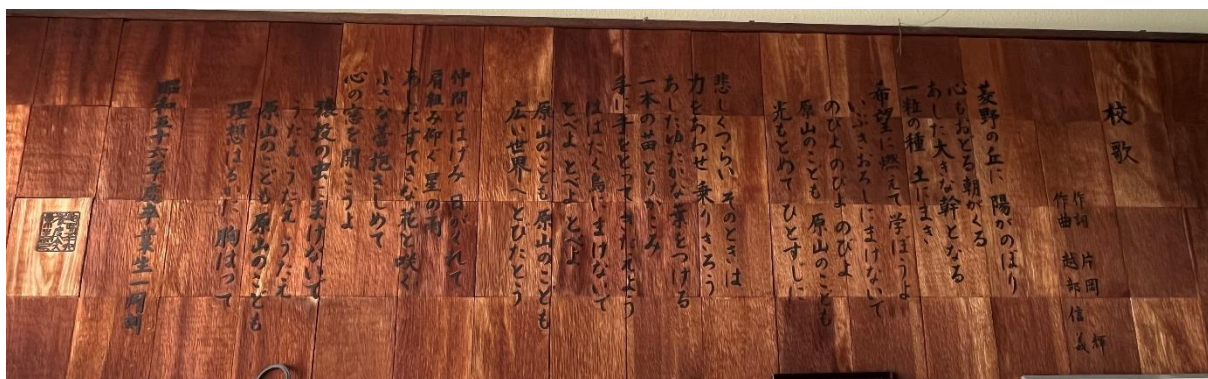 校歌
作詞 片岡 輝
作曲 越部信義
菱野の丘に 陽がのぼり
心もおどる朝がくる
あした大きな幹となる
一粒の種 土にまき
希望に燃えて学ぼうよ
いぶきおろしにまけないで
のびよのびよ のびよ
原山のこども 原山のこども
光もとめて ひとすじに
悲しくつらい そのときは
力をあわせ 乗りきろう
あしたゆたかな葉をつける
一本の苗 とりかこみ
手に手をとって きたえよう
はばたく鳥に まけないで
とべよ とべよ とべよ
原山のこども 原山のこども
広い世界へ とびたとう
仲間とはげみ 日がくれて
肩組み仰ぐ 星の雨
あしたすてきな 花と咲く
小さな蕾 抱きしめて
心の窓を 開こうよ
猿投の虫に まけないで
うたえ うたえ うたえ
原山のこども 原山のこども
理想はるかに 胸はって
昭和五十六年度卒業生一同